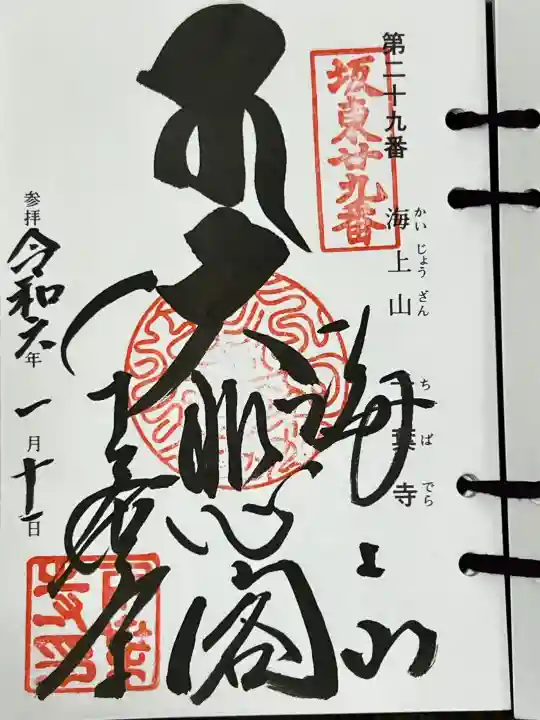 第二十九番 海上山 千葉寺
かいじょうざん ちばでら
坂東廿九番
海上山
大悲閣
千葉寺
参拝 令和六年一月十一日